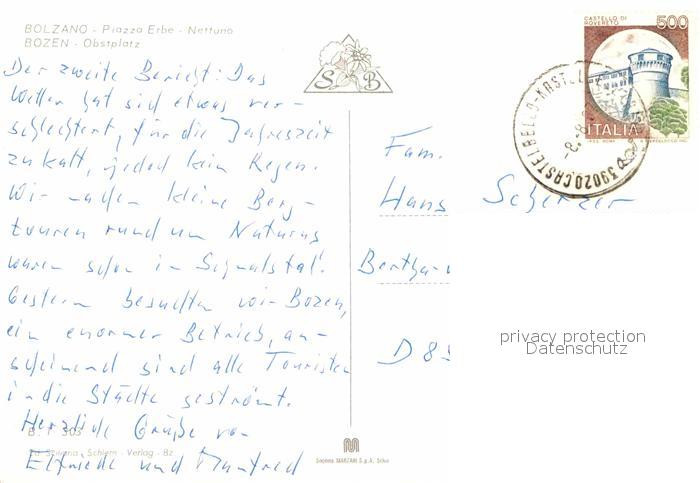 BOLZANO - Piazza Erbe - Nettuno
BOZEN - Obstplatz
Der zweite Bericht: Das
Wetter hat sich etwas ver-
schlechtert, für die Jahreszeit
zu kalt, jedoch kein Regen.
Wir machen kleine Berg-
touren rund um Naturns
waren schon im Schnalstal.
Gestern besuchten wir Bozen,
ein enormer Betrieb, an-
scheinend sind alle Touristen
in die Städte geströmt.
Herzliche Grüße von
Elfriede und Manfred
B. T 303
Schlern - Verlag - Bz
S B
Società MARZARI S.p.A. Schio
CASTELLO DI
ROVERETO
500
ITALIA
39020 CASTELBELLO-KASTEL
Fam.
Hans Scherzer
D 8
privacy protection
Datenschutz